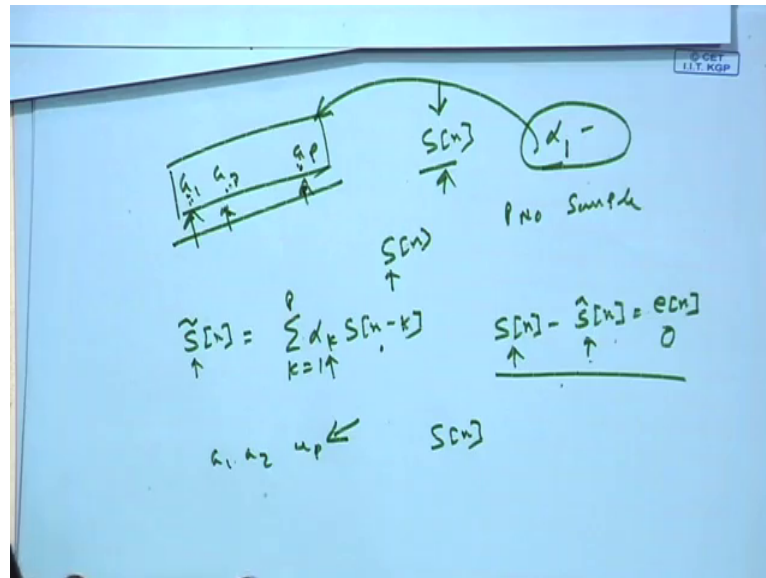 © CET
I.I.T. KGP
a₁ a₂ aₚ
S[n]
α₁ -
P No Sample
S[n]
s̃[n] = Σ_{k=1}^{p} αₖ S[n-k]
S[n] - ŝ[n] = e[n]
0
a₁ a₂ aₚ
S[n]